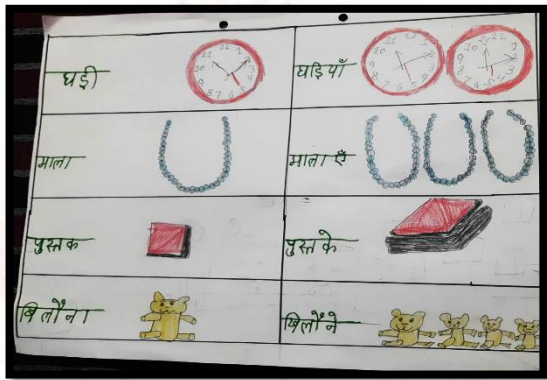 घड़ी घड़ियाँ
माला मालाएँ
पुस्तक पुस्तके
खिलौना खिलौने